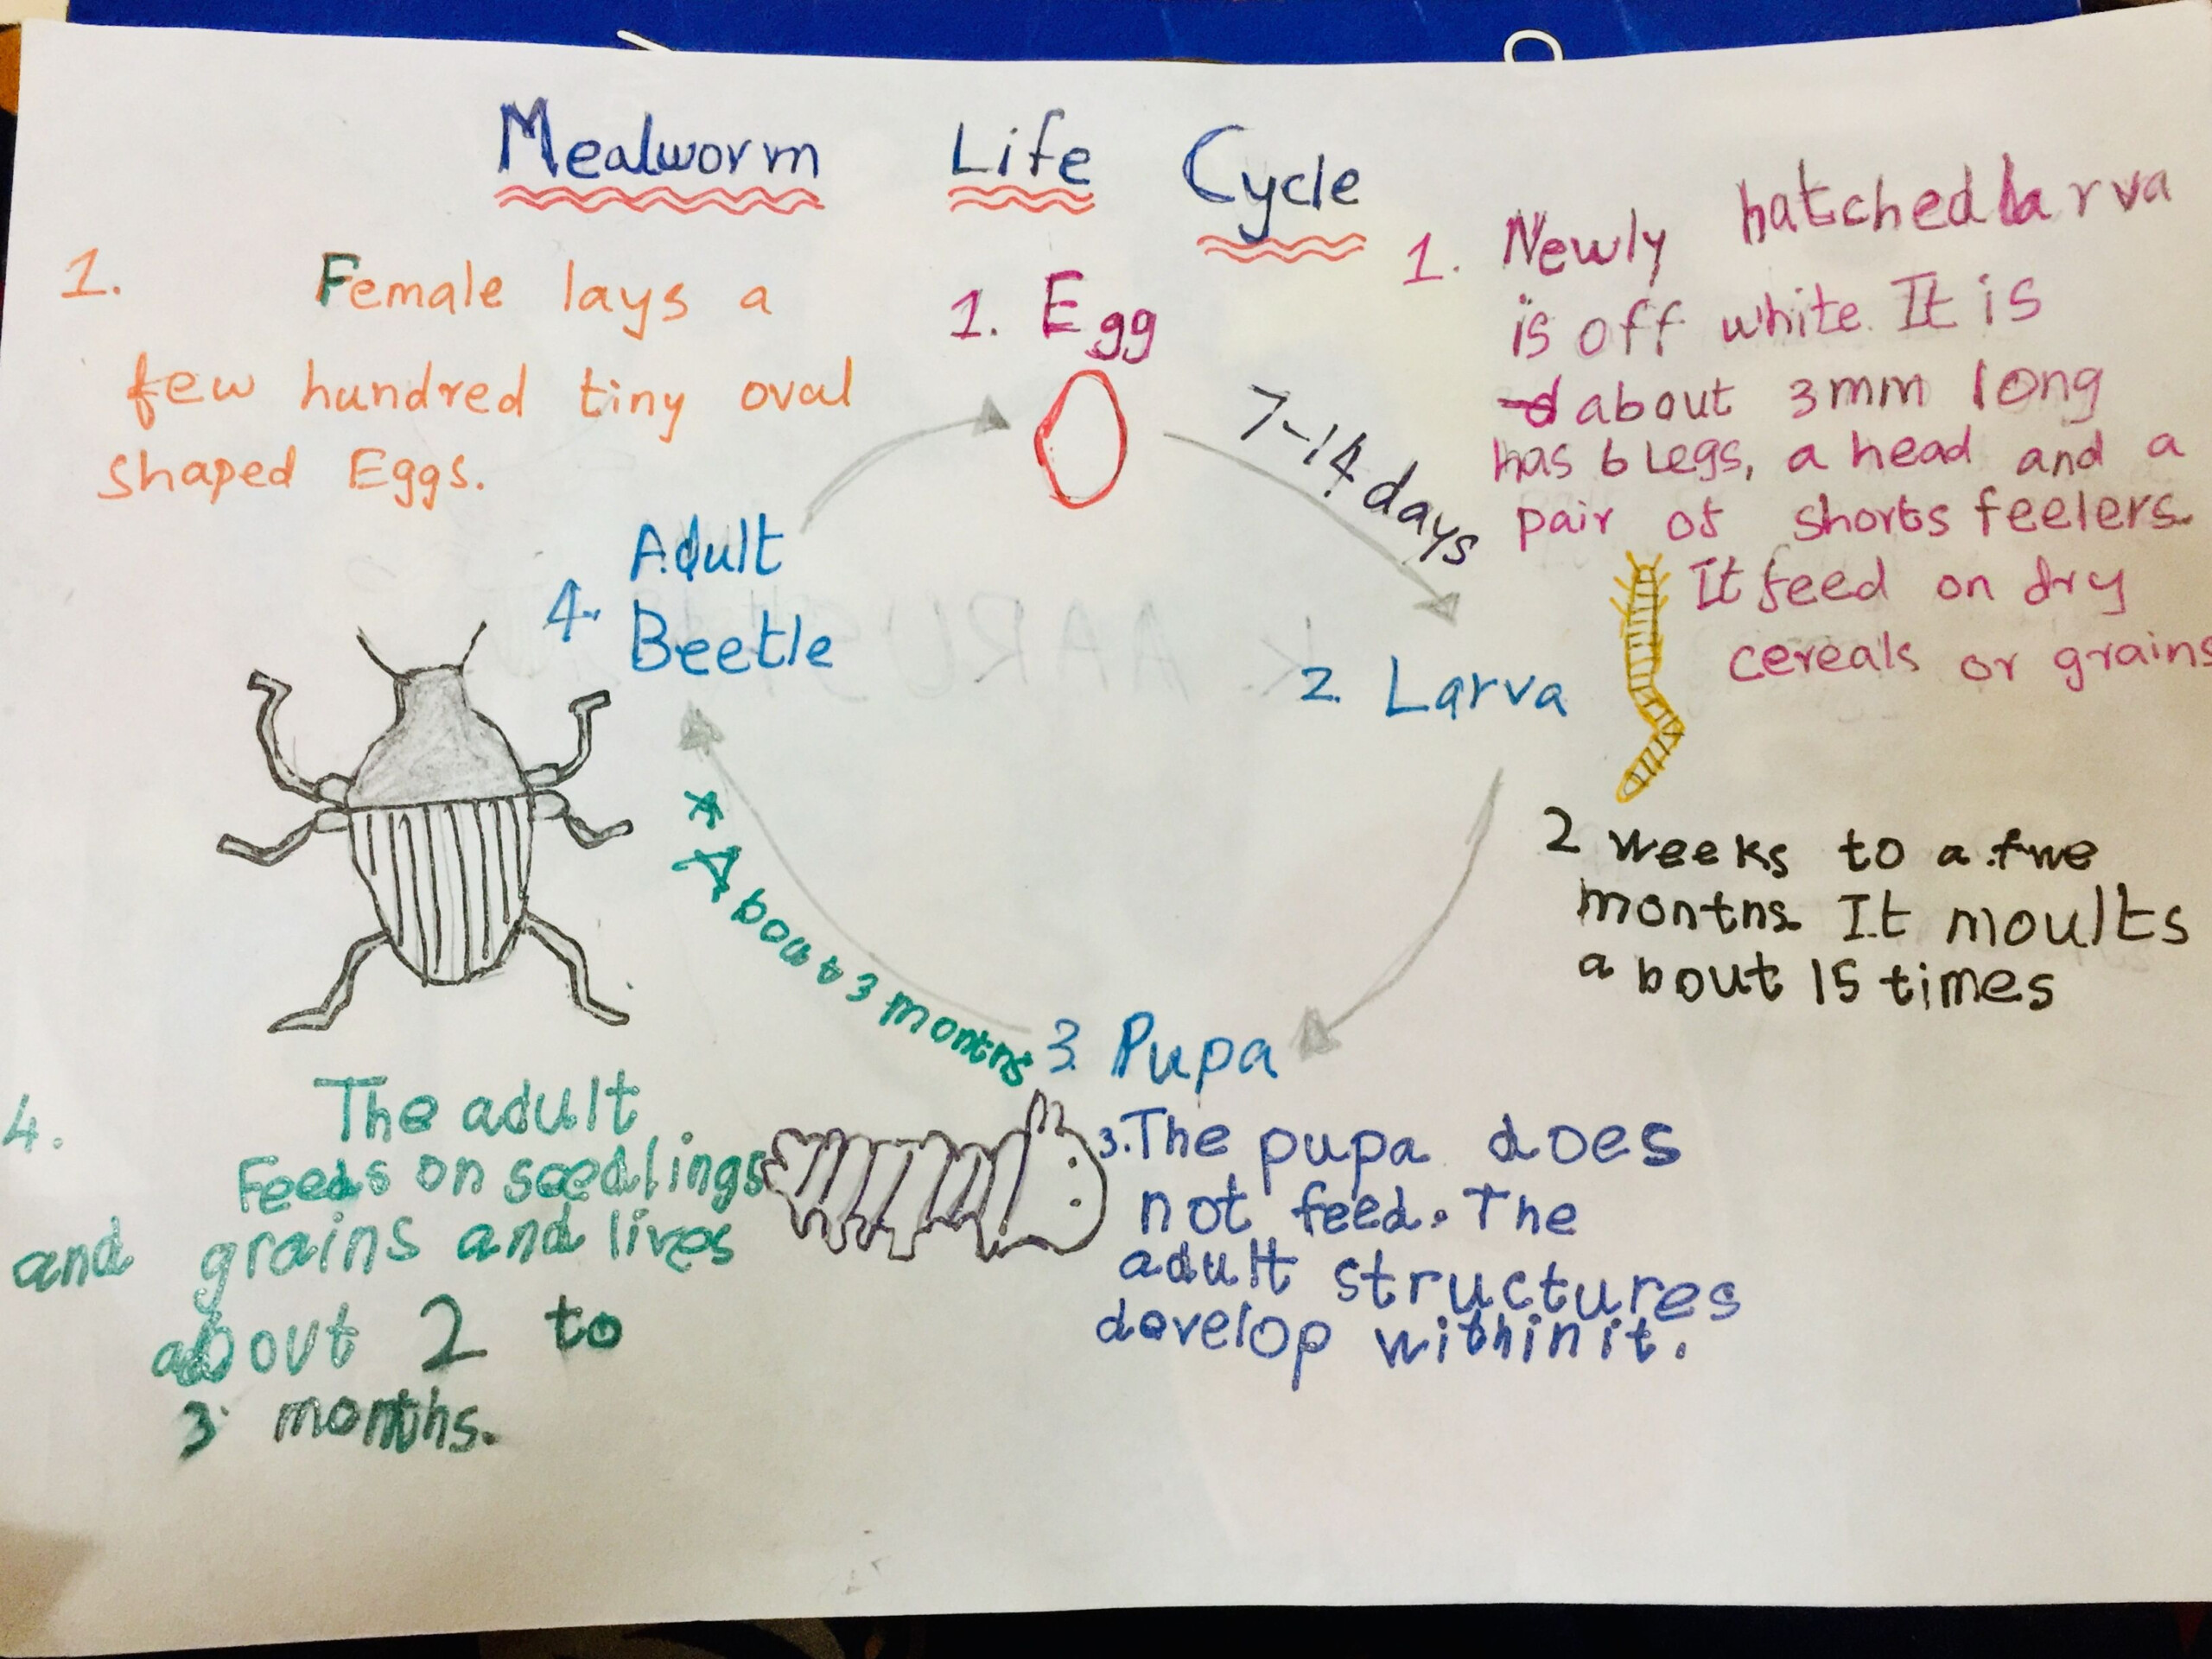 Mealworm Life Cycle
1. Female lays a
few hundred tiny oval
shaped Eggs.
1. Egg
7-14 days
1. Newly hatched larva
is off white. It is
about 3mm long
has 6 Legs, a head and a
pair of shorts feelers.
It feed on dry
cereals or grains
2. Larva
2 weeks to a fwe
months. It moults
about 15 times
3. Pupa
3. The pupa does
not feed. The
adult structures
develop within it.
* About 3 months
4. Adult
Beetle
4. The adult
Feeds on seedlings
and grains and lives
about 2 to
3 months.